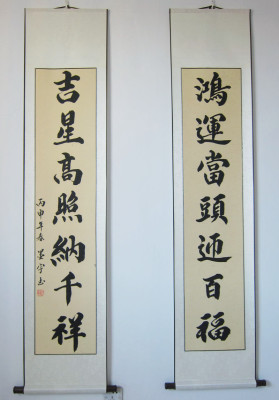 鴻運當頭迊百福
吉星高照納千祥
丙申年春